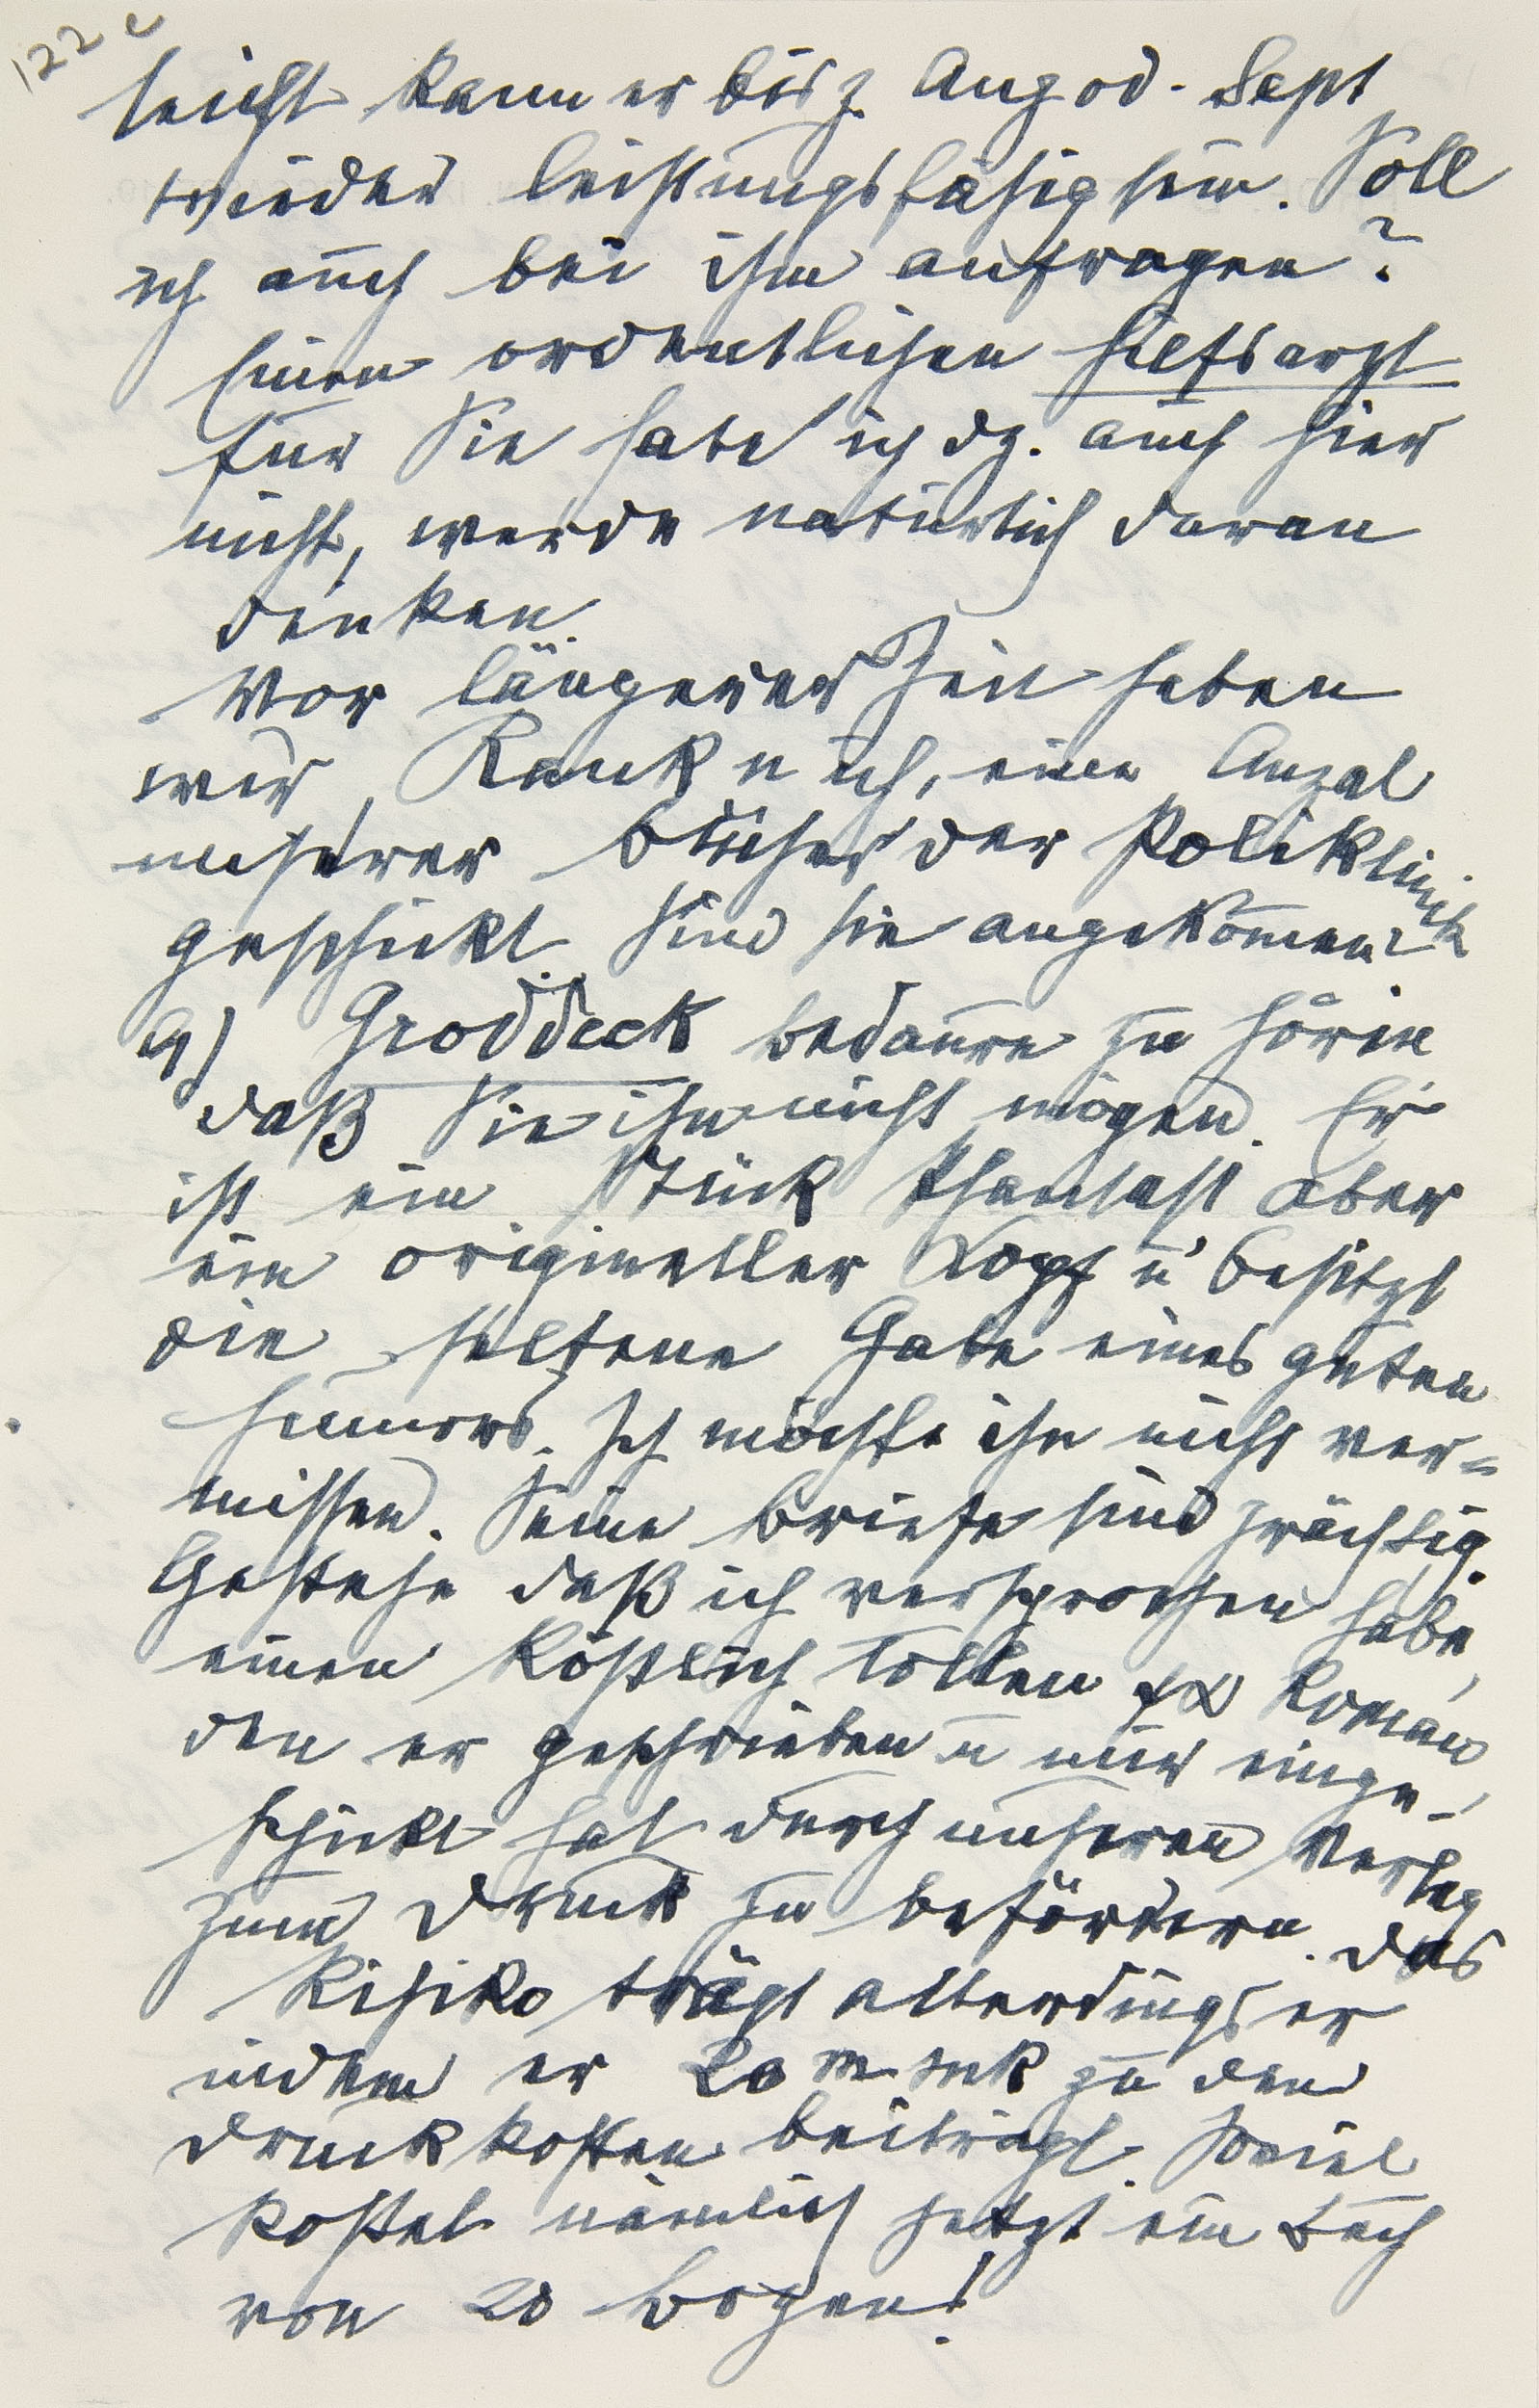 122 c
leicht kann er bis z. Aug od. Sept
wieder leistungsfähig sein. Soll
ich auch bei ihm anfragen?
Einen ordentlichen Hilfsarzt
für Sie habe ich dz. auch hier
nicht, werde natürlich daran
denken.
Vor längerer Zeit haben
wir, Rank u ich, eine Anzal
unserer Bücher der Poliklinik
geschickt. Sind sie angekommen?
9) Groddeck bedaure zu hören
daß Sie ihn nicht mögen. Er
ist ein Stück Phantast aber
ein origineller Kopf u besitzt
die seltene Gabe eines guten
Humors. Ich möchte ihn nicht ver=
missen. Seine Briefe sind prächtig.
Gestehe daß ich versprochen habe,
einen köstlich tollen ψα Roman
den er geschrieben u mir einge-
schickt hat durch unseren Verlag
zum Druck zu befördern. Das
Risiko trägt allerdings er
indem er 20 m mk zu den
Druckkosten beiträgt. Soviel
kostet nämlich jetzt ein Buch
von 20 Bogen!